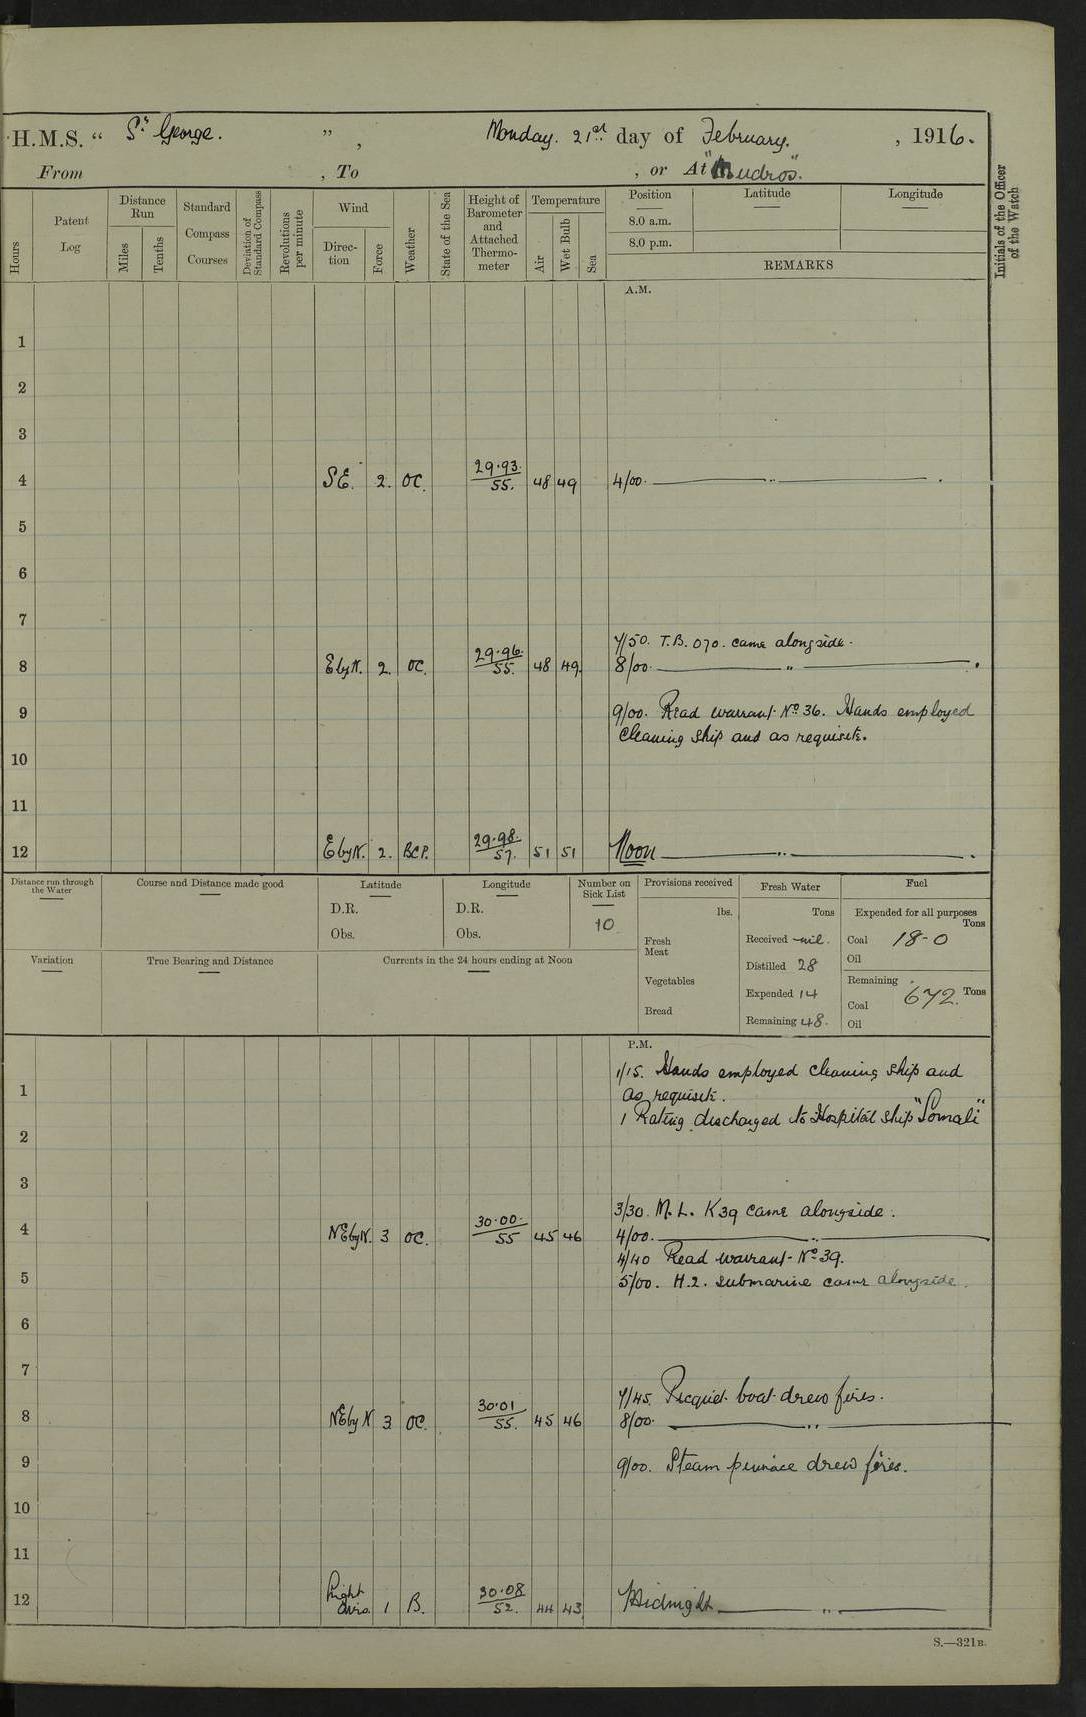 H.M.S. “ St George. ”, Monday. 21st day of February. , 1916.
From , To , or At "Mudros".
Hours
Patent Log
Distance Run
Miles
Tenths
Standard Compass Courses
Deviation of Standard Compass
Revolutions per minute
Wind
Direc-tion
Force
Weather
State of the Sea
Height of Barometer and Attached Thermo-meter
Temperature
Air
Wet Bulb
Sea
Position
8.0 a.m.
8.0 p.m.
Latitude
Longitude
REMARKS
Initials of the Officer of the Watch
A.M.
1
2
3
4 SE. 2. OC. 29.93. 55. 48 49 4/00. ,,
5
6
7
7/50. T.B. 070. came alongside.
8 EbyN. 2. OC. 29.96. 55. 48 49. 8/00. ,,
9 9/00. Read warrant No 36. Hands employed
cleaning ship and as requisite.
10
11
12 EbyN. 2. BCP. 29.98. 57. 51 51 Noon ,,
Distance run through the Water
Course and Distance made good
Latitude
D.R.
Obs.
Longitude
D.R.
Obs.
Number on Sick List
10
Provisions received
lbs.
Fresh Meat
Vegetables
Bread
Fresh Water
Tons
Received nil.
Distilled 28
Expended 14
Remaining 48.
Fuel
Expended for all purposes
Tons
Coal 18-0
Oil
Remaining
Tons
Coal 672.
Oil
Variation
True Bearing and Distance
Currents in the 24 hours ending at Noon
P.M.
1/15. Hands employed cleaning ship and
1 as requisite.
1 Rating discharged to Hospital Ship "Somali"
2
3
3/30. M.L. K39 came alongside.
4 NEbyN. 3 OC. 30.00. 55 45 46 4/00. ,,
4/40 Read warrant No 39.
5 5/00. H.2. submarine came alongside.
6
7
7/45. Picquet boat drew fires.
8 NEbyN 3 OC. 30.01 55. 45 46 8/00. ,,
9 9/00. Steam pinnace drew fires.
10
11
12 Light airs. 1 B. 30.08 52. 44 43 Midnight ,,
S.—321B.